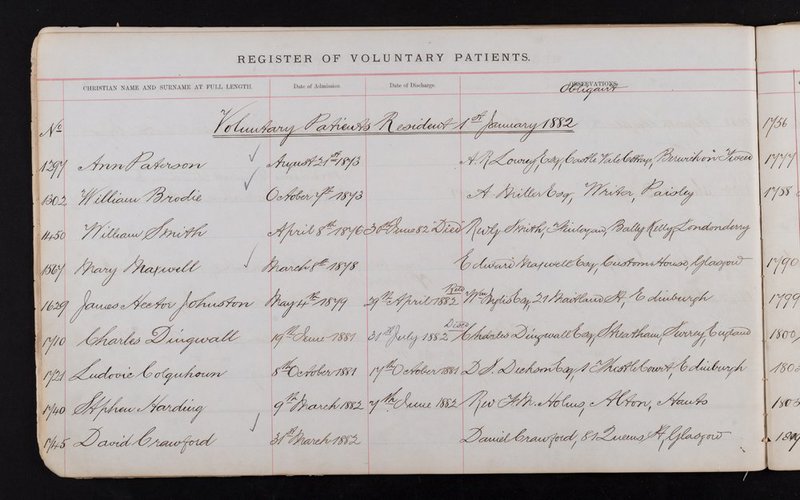 REGISTER OF VOLUNTARY PATIENTS.
CHRISTIAN NAME AND SURNAME AT FULL LENGTH. Date of Admission. Date of Discharge. OBSERVATIONS. Obligant
No Voluntary Patients Resident 1st January 1882 1756
1297 Ann Paterson August 21st 1873 Esqr, Castle Vale Cottage, Berwick on Tweed 1777
1302 William Brodie October 7th 1873 A. Miller Esqr, Writer, Paisley 1788
1450 William Smith April 8th 1876 30th June 82 Died Smith, Bally Kelly, Londonderry
1567 Mary Maxwell March 8th 1878 Edward Maxwell Esqr, Custom House, Glasgow 1790
1629 James Hector Johnston May 14th 1879 29th April 1882 Inglis Esqr, 21 Maitland St, Edinburgh 1799
1710 Charles Dingwall 19th June 1881 31st July 1882 Died Charles Dingwall Esqr, Streatham, Surrey, England 1800
1721 Ludovic Colquhoun 8th October 1881 17th October 1881 D. S. Dickson Esqr, 1 Thistle Court, Edinburgh
1740 Stephen Harding 9th March 1882 7th June 1882 Rev Holme, Alton, Hants
1745 David Crawford 31st March 1882 Daniel Crawford, 81 Queens St, Glasgow